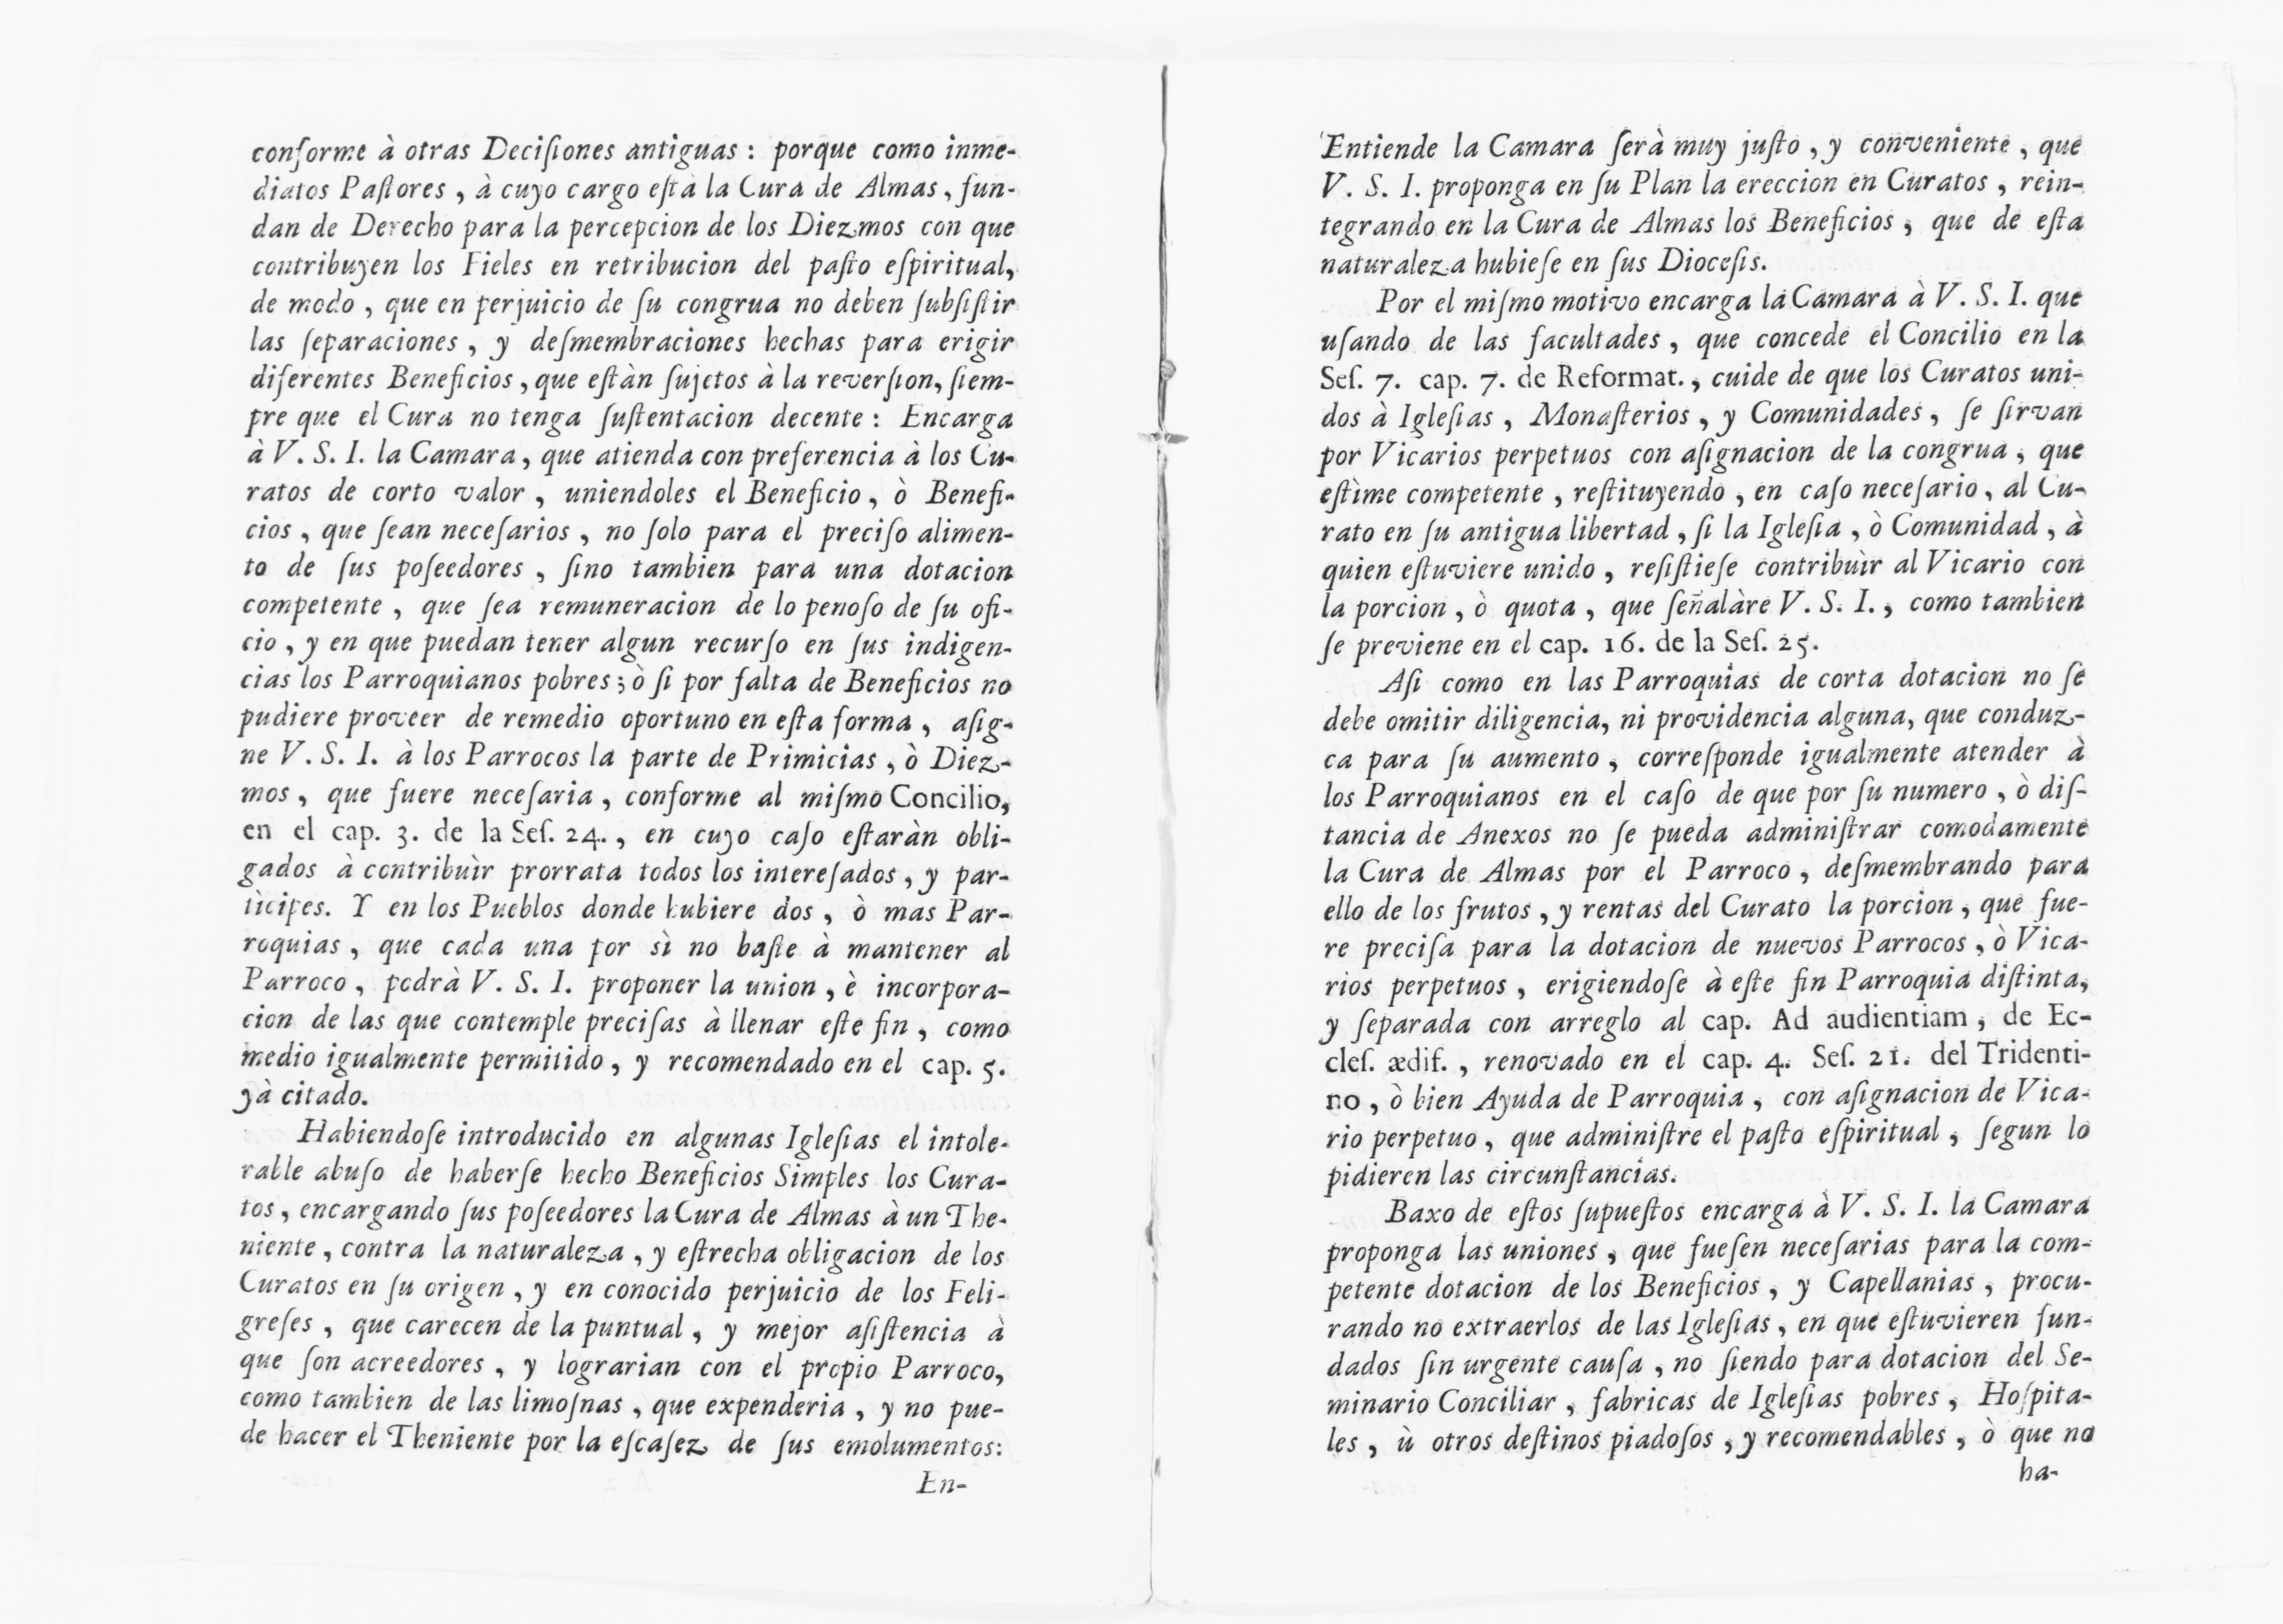 conforme à otras Deciſiones antiguas : porque como inme-
diatos Paſtores , à cuyo cargo eſtà la Cura de Almas , fun-
dan de Derecho para la percepcion de los Diezmos con que
contribuyen los Fieles en retribucion del paſto eſpiritual,
de modo , que en perjuicio de ſu congrua no deben ſubſiſtir
las ſeparaciones , y deſmembraciones hechas para erigir
diferentes Beneficios , que eſtàn ſujetos à la reverſion, ſiem-
pre que el Cura no tenga ſuſtentacion decente : Encarga
à V. S. I. la Camara , que atienda con preferencia à los Cu-
ratos de corto valor , uniendoles el Beneficio , ò Benefi-
cios , que ſean neceſarios , no ſolo para el preciſo alimen-
to de ſus poſeedores , ſino tambien para una dotacion
competente , que ſea remuneracion de lo penoſo de ſu ofi-
cio , y en que puedan tener algun recurſo en ſus indigen-
cias los Parroquianos pobres ; ò ſi por falta de Beneficios no
pudiere proveer de remedio oportuno en eſta forma , aſig-
ne V. S. I. à los Parrocos la parte de Primicias , ò Diez-
mos , que fuere neceſaria , conforme al miſmo Concilio,
en el cap. 3. de la Seſ. 24. , en cuyo caſo eſtaràn obli-
gados à contribuìr prorrata todos los intereſados , y par-
tìcipes. Y en los Pueblos donde hubiere dos , ò mas Par-
roquias , que cada una por sì no baſte à mantener al
Parroco , podrà V. S. I. proponer la union , è incorpora-
cion de las que contemple preciſas à llenar eſte fin , como
medio igualmente permitido , y recomendado en el cap. 5.
yà citado.
Habiendoſe introducido en algunas Igleſias el intole-
rable abuſo de haberſe hecho Beneficios Simples los Cura-
tos , encargando ſus poſeedores la Cura de Almas à un The-
niente , contra la naturaleza , y eſtrecha obligacion de los
Curatos en ſu origen , y en conocido perjuicio de los Feli-
greſes , que carecen de la puntual , y mejor aſiſtencia à
que ſon acreedores , y lograrian con el propio Parroco,
como tambien de las limoſnas , que expenderia , y no pue-
de hacer el Theniente por la eſcaſez de ſus emolumentos:
En-
Entiende la Camara ſerà muy juſto , y conveniente , que
V. S. I. proponga en ſu Plan la ereccion en Curatos , rein-
tegrando en la Cura de Almas los Beneficios , que de eſta
naturaleza hubieſe en ſus Dioceſis.
Por el miſmo motivo encarga la Camara à V. S. I. que
uſando de las facultades , que concede el Concilio en la
Seſ. 7. cap. 7. de Reformat. , cuide de que los Curatos uni-
dos à Igleſias , Monaſterios , y Comunidades , ſe ſirvan
por Vicarios perpetuos con aſignacion de la congrua , que
eſtime competente , reſtituyendo , en caſo neceſario , al Cu-
rato en ſu antigua libertad , ſi la Igleſia , ò Comunidad , à
quien eſtuviere unido , reſiſtieſe contribuìr al Vicario con
la porcion , ò quota , que ſeñalàre V. S. I. , como tambien
ſe previene en el cap. 16. de la Seſ. 25.
Aſi como en las Parroquias de corta dotacion no ſe
debe omitir diligencia, ni providencia alguna, que conduz-
ca para ſu aumento , correſponde igualmente atender à
los Parroquianos en el caſo de que por ſu numero , ò diſ-
tancia de Anexos no ſe pueda adminiſtrar comodamente
la Cura de Almas por el Parroco , deſmembrando para
ello de los frutos , y rentas del Curato la porcion , que fue-
re preciſa para la dotacion de nuevos Parrocos , ò Vica-
rios perpetuos , erigiendoſe à eſte fin Parroquia diſtinta,
y ſeparada con arreglo al cap. Ad audientiam , de Ec-
cleſ. ædif. , renovado en el cap. 4. Seſ. 21. del Tridenti-
no , ò bien Ayuda de Parroquia , con aſignacion de Vica-
rio perpetuo , que adminiſtre el paſto eſpiritual , ſegun lo
pidieren las circunſtancias.
Baxo de eſtos ſupueſtos encarga à V. S. I. la Camara
proponga las uniones , que fueſen neceſarias para la com-
petente dotacion de los Beneficios , y Capellanias , procu-
rando no extraerlos de las Igleſias , en que eſtuvieren fun-
dados ſin urgente cauſa , no ſiendo para dotacion del Se-
minario Conciliar , fabricas de Igleſias pobres , Hoſpita-
les , ù otros deſtinos piadoſos , y recomendables , ò que no
ha-